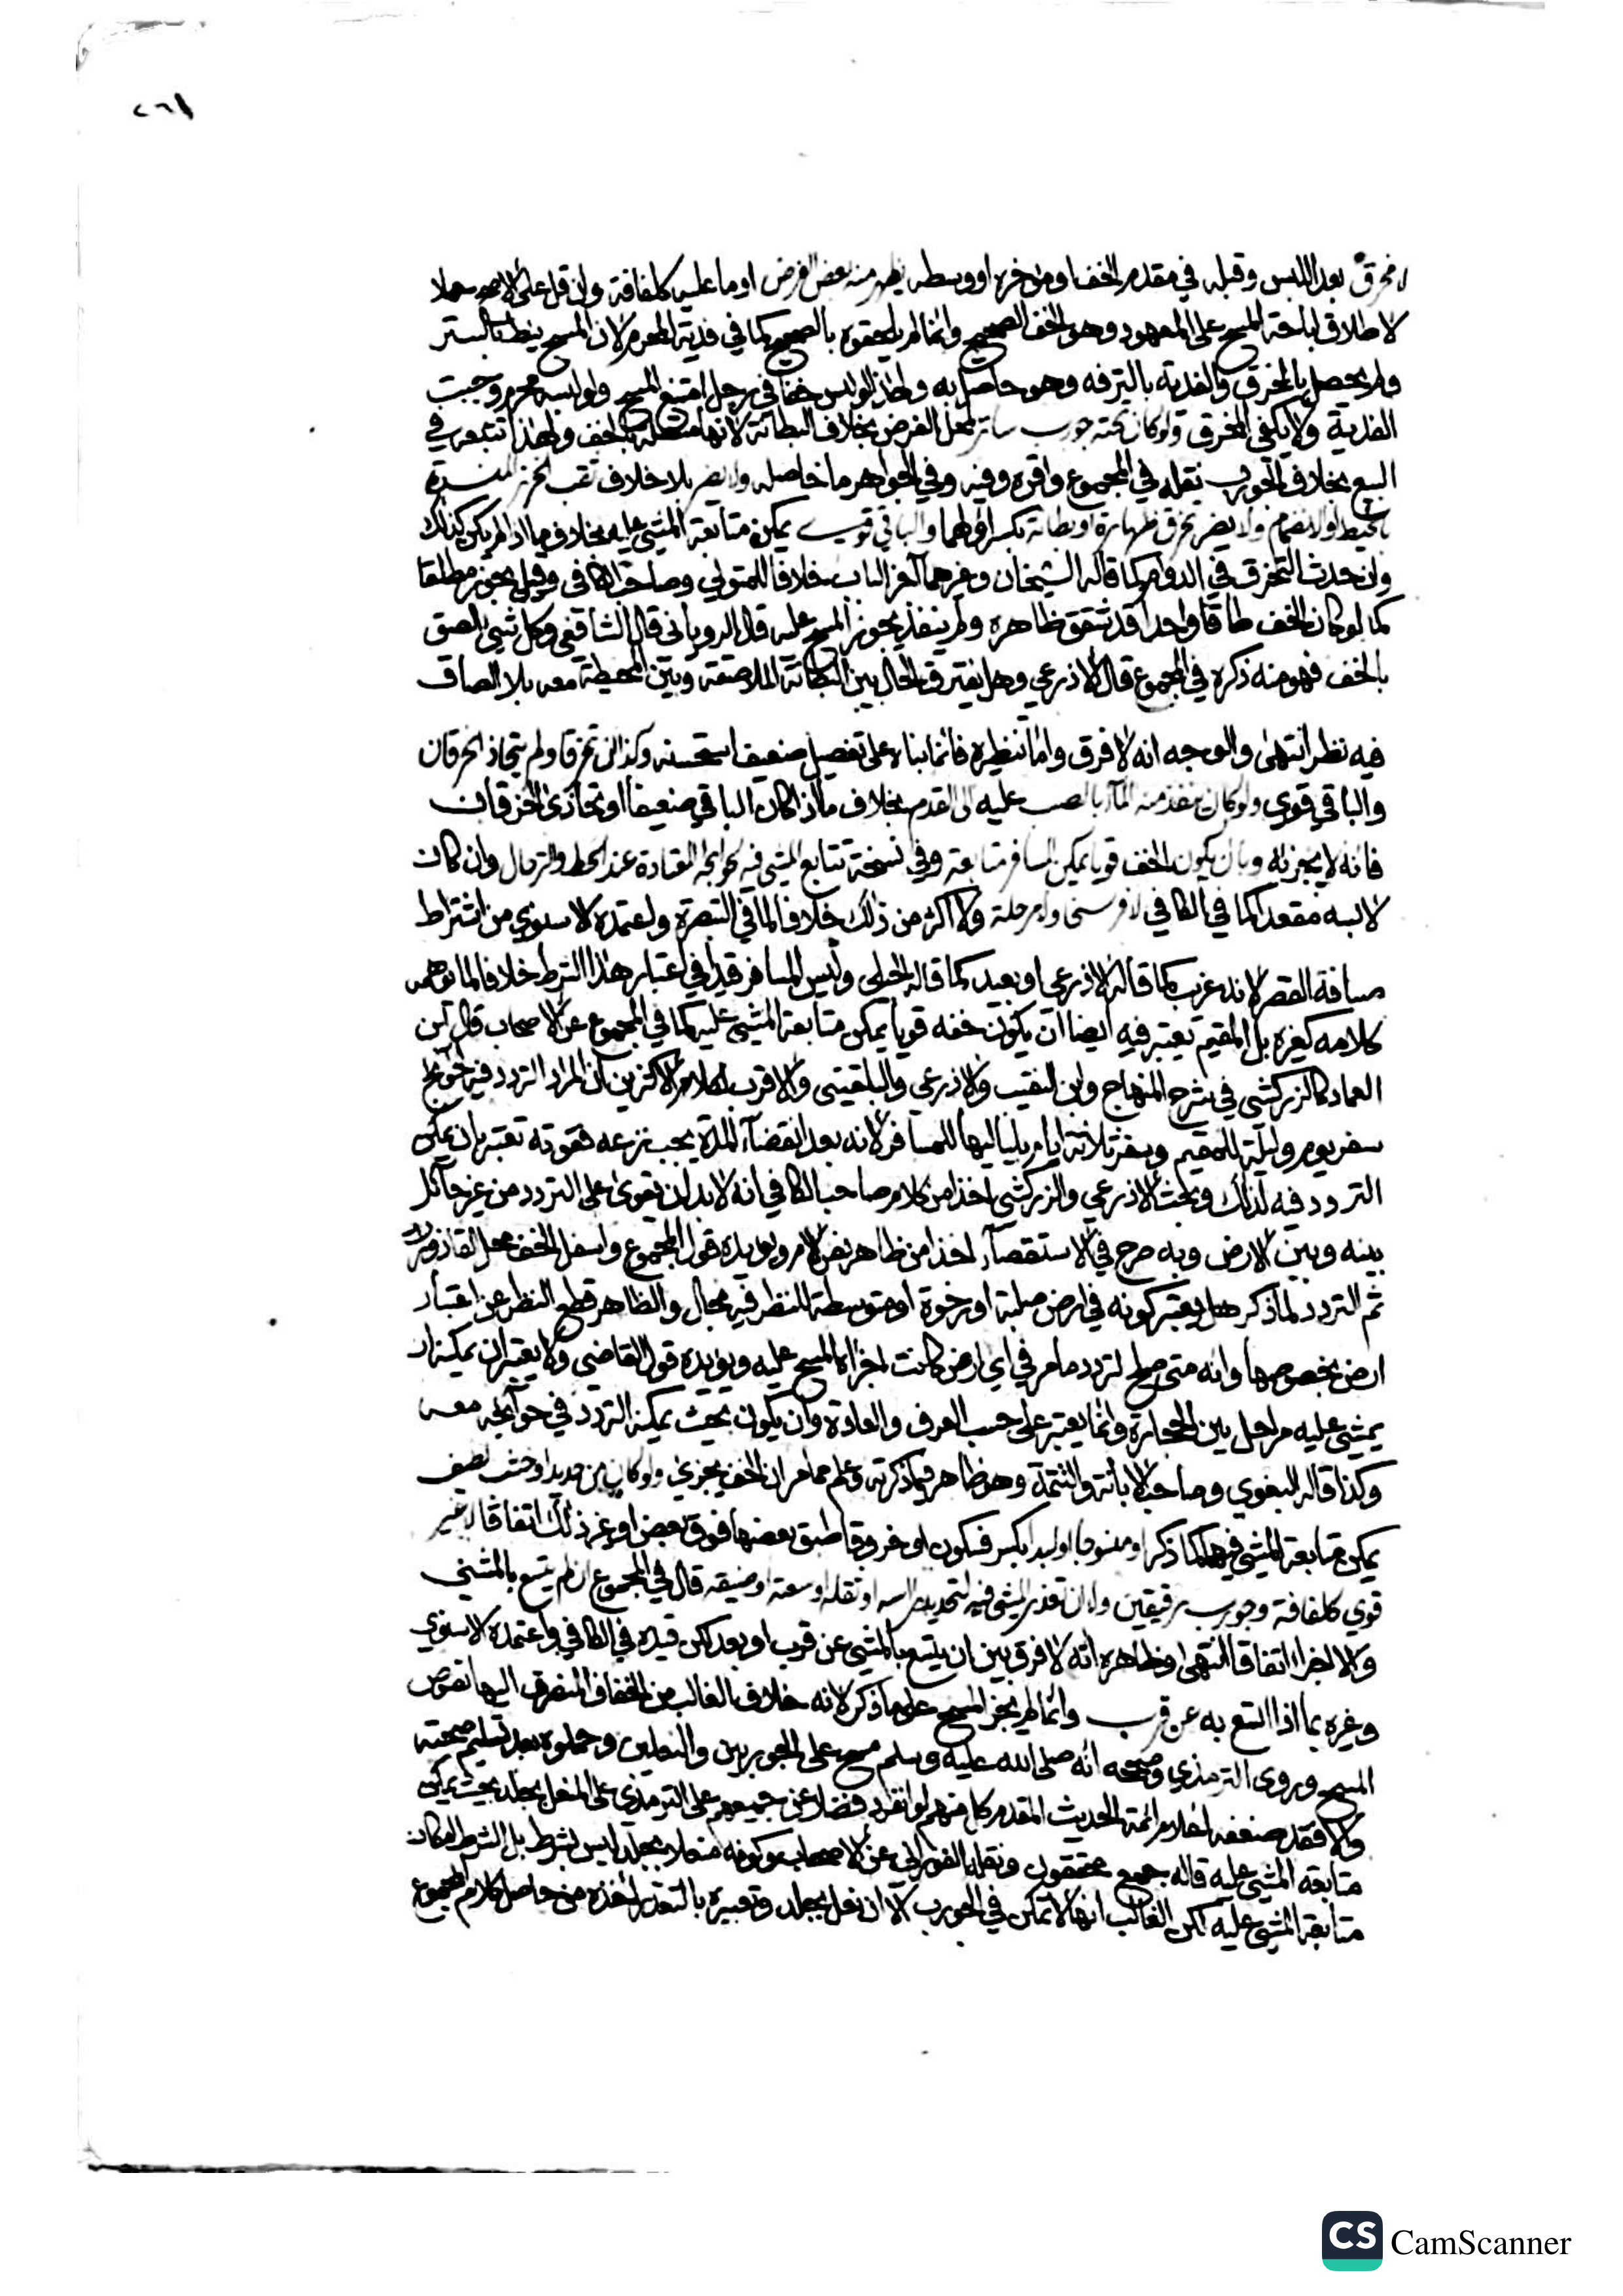 ٢٦١
لا مخرق بعد اللبس وقبله في مقدم الخف او مؤخره او وسطه يظهر منه بعض الفرض او ما عليه كلفافة وان قل على الاصح حملا
لاطلاق اباحة المسح على المعهود وهو الخف الصحيح وانما لم يلحقوه بالصحيح كما في فدية المحرم لان المسح ينط بالستر
ولم يحصل بالمخرق والفدية بالترفه وهو حاصل به ولهذا لو لبس خفا في رجل امتنع المسح ولو لبسه محرم وجبت
الفدية ولا يكفي المخرق ولو كان تحته جورب ساتر لمحل الفرض بخلاف البطانة لانها متصلة بالخف ولهذا تتبعه في
البيع بخلاف الجورب نقله في المجموع واقره وفيه وفي الجواهر ما حاصله ولا يضر بلا خلاف ثقب الخرز المنسدة
بالخيط او الانضمام ولا يضر تخرق ظهارة او بطانة بكسر اولهما والباقي قوي يمكن متابعة المشي عليه بخلاف ما اذا لم يكن كذلك
وان حدث التخرق في الدوام كما قاله الشيخان وغيرهما آخر الباب خلافا للمتولي وصاحب الكافي وقيل يجوز مطلقا
كما لو كان الخف طاقا واحدا قد تشقق ظاهره ولم ينفذ يجوز المسح عليه قال الروياني قال الشافعي وكل شيء يلصق
بالخف فهو منه ذكره في المجموع قال الاذرعي وهل يفترق الحال بين البطانة الملاصقة وبين المحيطة معه بلا الصاق
فيه نظر انتهى والوجه انه لا فرق واما تنظيره فانما بناه على تفصيل ضعيف استحسنه وكذا ان تخرقا ولم يتحاذ الخرقان
والباقي قوي ولو كان ينفذ منه الماء بالصب عليه الى القدم بخلاف ما اذا كان الباقي ضعيفا او تحاذى الخرقان
فانه لا يجزيه وبان يكون الخف قويا يمكن المسافر متابعة وفي نسخة تتابع المشي فيه لحوائجه المعتادة عند الحط والترحال وان كان
لابسه مقعدا كما في الكافي لا فرسخ ولا مرحلة ولا اكثر من ذلك خلافا لما في التبصرة واعتمده الاسنوي من اشتراط
مسافة القصر لانه غريب كما قاله الاذرعي او بعيد كما قاله الجيلي وليس المسافر قيدا في اعتبار هذا الشرط خلافا لما توهمه
كلامه كغيره بل المقيم يعتبر فيه ايضا ان يكون خفه قويا يمكن متابعة المشي عليه كما في المجموع عن الاصحاب قال ابن
العماد كالزركشي في شرح المنهاج وابن النقيب والاذرعي والبلقيني والاقرب لكلام الاكثرين ان المراد التردد فيه لحوائج
سفر يوم وليلة للمقيم وسفر ثلاثة ايام بلياليها للمسافر لانه بعد انقضاء المدة يجب نزعه فقوته تعتبر بان يمكن
التردد فيه لذلك وبحث الاذرعي والزركشي اخذا من كلام صاحب الكافي انه لا بد ان يقوى على التردد من غير حائل
بينه وبين الارض وبه صرح في الاستقصاء اخذا من ظاهر نص الام ويؤيده قول المجموع واسفل الخف محل القاذورات
ثم التردد لما ذكر هل يعتبر كونه في ارض صلبة او رخوة او متوسطة للنظر فيه مجال والظاهر قطع النظر عن اعتبار
ارض بخصوصها وانه متى صلح لتردد ما مر في اي ارض كانت اجزا المسح عليه ويؤيده قول القاضي ولا يعتبر ان يمكنه ان
يمشي عليه مراحل بين الحجارة وانما يعتبر على حسب العرف والعادة وان يكون بحيث يمكنه التردد في حوائجه معه
وكذا قاله البغوي وصاحب الابانة والتتمة وهو ظاهر فيما ذكرته وعلم مما مر ان الخف يجزي ولو كان من حديد او خشب لطيف
يمكن متابعة المشي فيهما كما ذكر او منسوجا او لبدا بكسر فسكون او خروقا طبق بعضها فوق بعض او غير ذلك اتفاقا لا غير
قوي كلفافة وجورب رقيقين ولا ان تعذر المشي فيه لتحديد راسه او ثقله او سعته او ضيقه قال في المجموع ان لم يتسع بالمشي
والا اجزا اتفاقا انتهى وظاهره انه لا فرق بين ان يتسع بالمشي عن قرب او بعد لكن قيده في الكافي واعتمده الاسنوي
وغيره بما اذا اتسع به عن قرب وانما لم يجز المسح على ما ذكر لانه خلاف الغالب من الخفاف المنصرف اليها نصوص
المسح وروى الترمذي وصححه انه صلى الله عليه وسلم مسح على الجوربين والنعلين وحملوه بعد تسليم صحته
والا فقد ضعفه اعلام ائمة الحديث المقدم كل منهم لو انفرد فضلا عن جميعهم على الترمذي على المنعل بجلد بحيث يمكن
متابعة المشي عليه قاله جمع محققون ونقله الفوراني عن الاصحاب وكونه منعلا بجلد ليس بشرط بل الشرط امكان
متابعة المشي عليه لكن الغالب انها لا تمكن في الجورب الا ان نعل بجلد وتعبيره بالتعذر اخذه من حاصل كلام المجموع
CS CamScanner